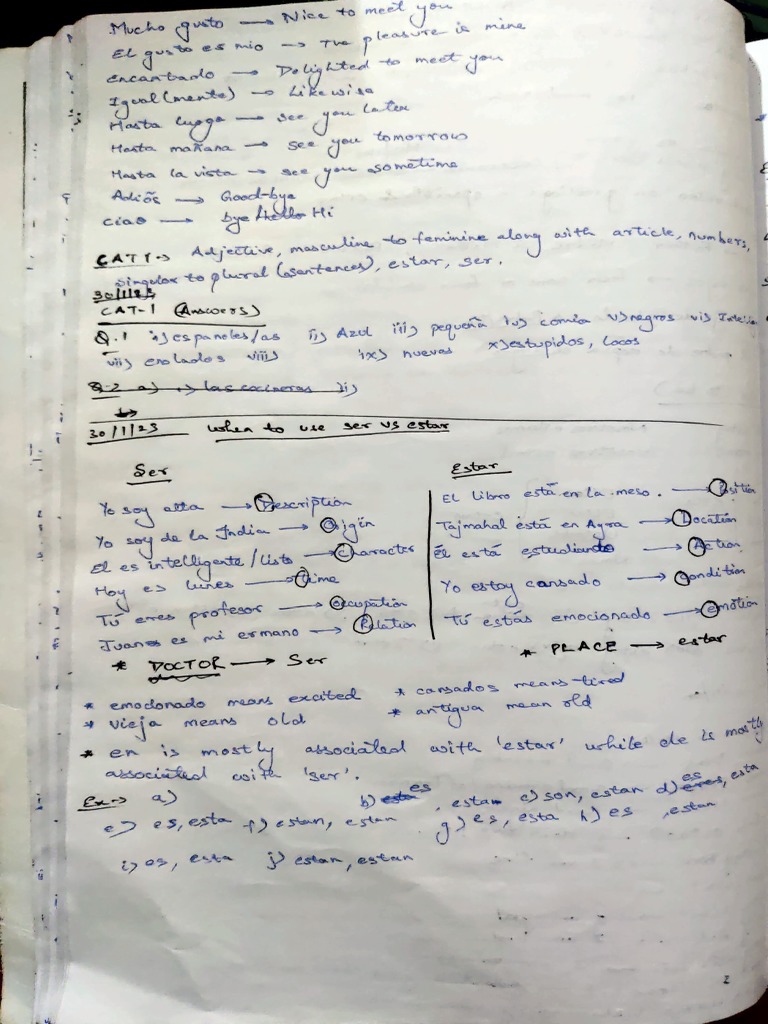 Mucho gusto → Nice to meet you
El gusto es mio → The pleasure is mine
encantado → Delighted to meet you
Igual(mente) → Likewise
Hasta luego → see you later
Hasta mañana → see you tomorrow
Hasta la vista → see you sometime
Adiós → Good-bye
ciao → bye/hello Hi
CAT 1 → Adjective, masculine to feminine along with article, numbers,
singular to plural (sentences), estar, ser.
30/1/23
CAT-1 (Answers)
Q.1 i) espanoles/as ii) Azul iii) pequeña iv) comia v) negros vi)
vii) enolados viii) ix) nuevas x) estupidos, locos
Q.2 a) i) las cocineras ii)
30/1/23 when to use ser vs estar
Ser Estar
Yo soy alta → Description El libro está en la meso. → Position
Yo soy de la India → Origin Tajmahal está en Agra → Location
El es intelligente/listo → character Él está estudiando → Action
Hoy es lunes → Time Yo estoy cansado → condition
Tú eres profesor → Occupation Tú estás emocionado → emotion
Juanes es mi ermano → Relation
* DOCTOR → Ser * PLACE → estar
* emocionado means excited * cansados means tired
* vieja means old * antigua mean old
* en is mostly associated with 'estar' while de is mostly
associated with 'ser'.
Ex → a) b) esta es, estan c) son, estan d) eres es, esta
e) es, esta f) estan, estan g) es, esta h) es, estan
i) es, esta j) estan, estan
2